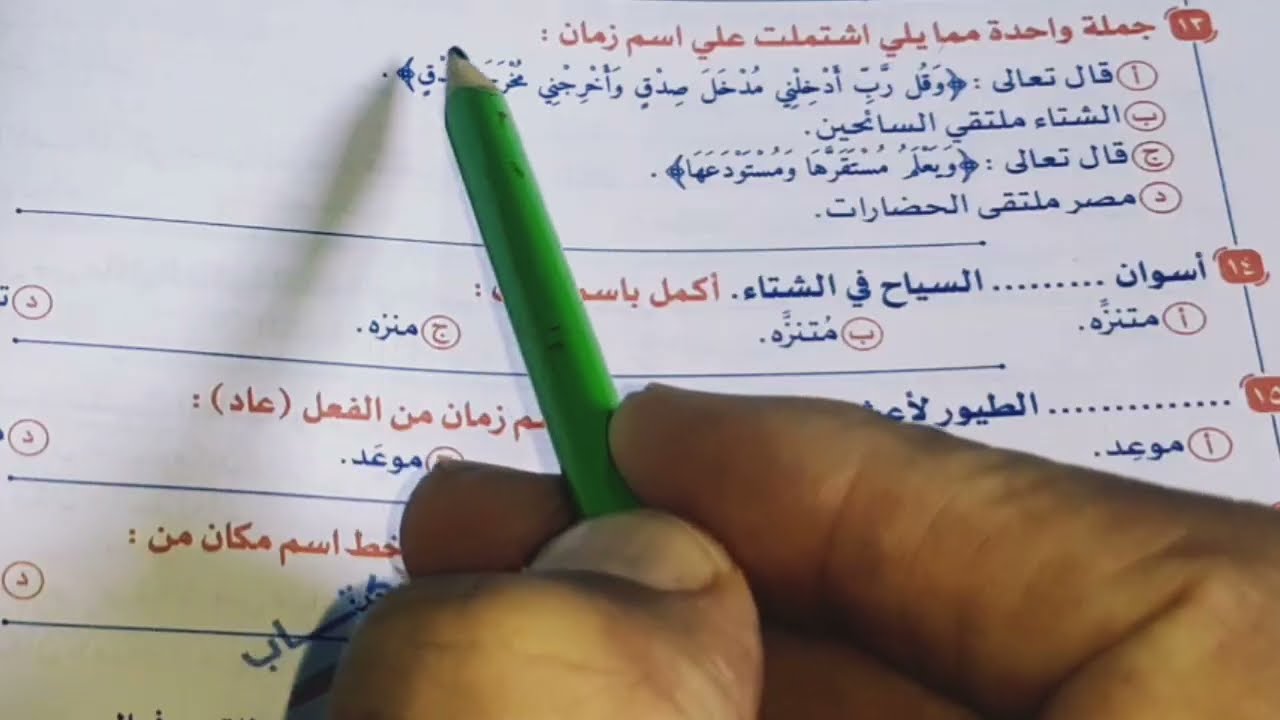 ١٣ جملة واحدة مما يلي اشتملت علي اسم زمان :
أ قال تعالى : ﴿وَقُل رَّبِّ أَدْخِلْنِي مُدْخَلَ صِدْقٍ وَأَخْرِجْنِي ﴾.
ب الشتاء ملتقي السائحين.
ج قال تعالى : ﴿وَيَعْلَمُ مُسْتَقَرَّهَا وَمُسْتَوْدَعَهَا﴾ .
د مصر ملتقى الحضارات.
١٤ أسوان ......... السياح في الشتاء. أكمل :
أ متنزَّه. ب مُتنزَّه. ج منزه. د
١٥ .............. الطيور زمان من الفعل (عاد) :
أ موعِد. موعَد. د
خط اسم مكان من :
د